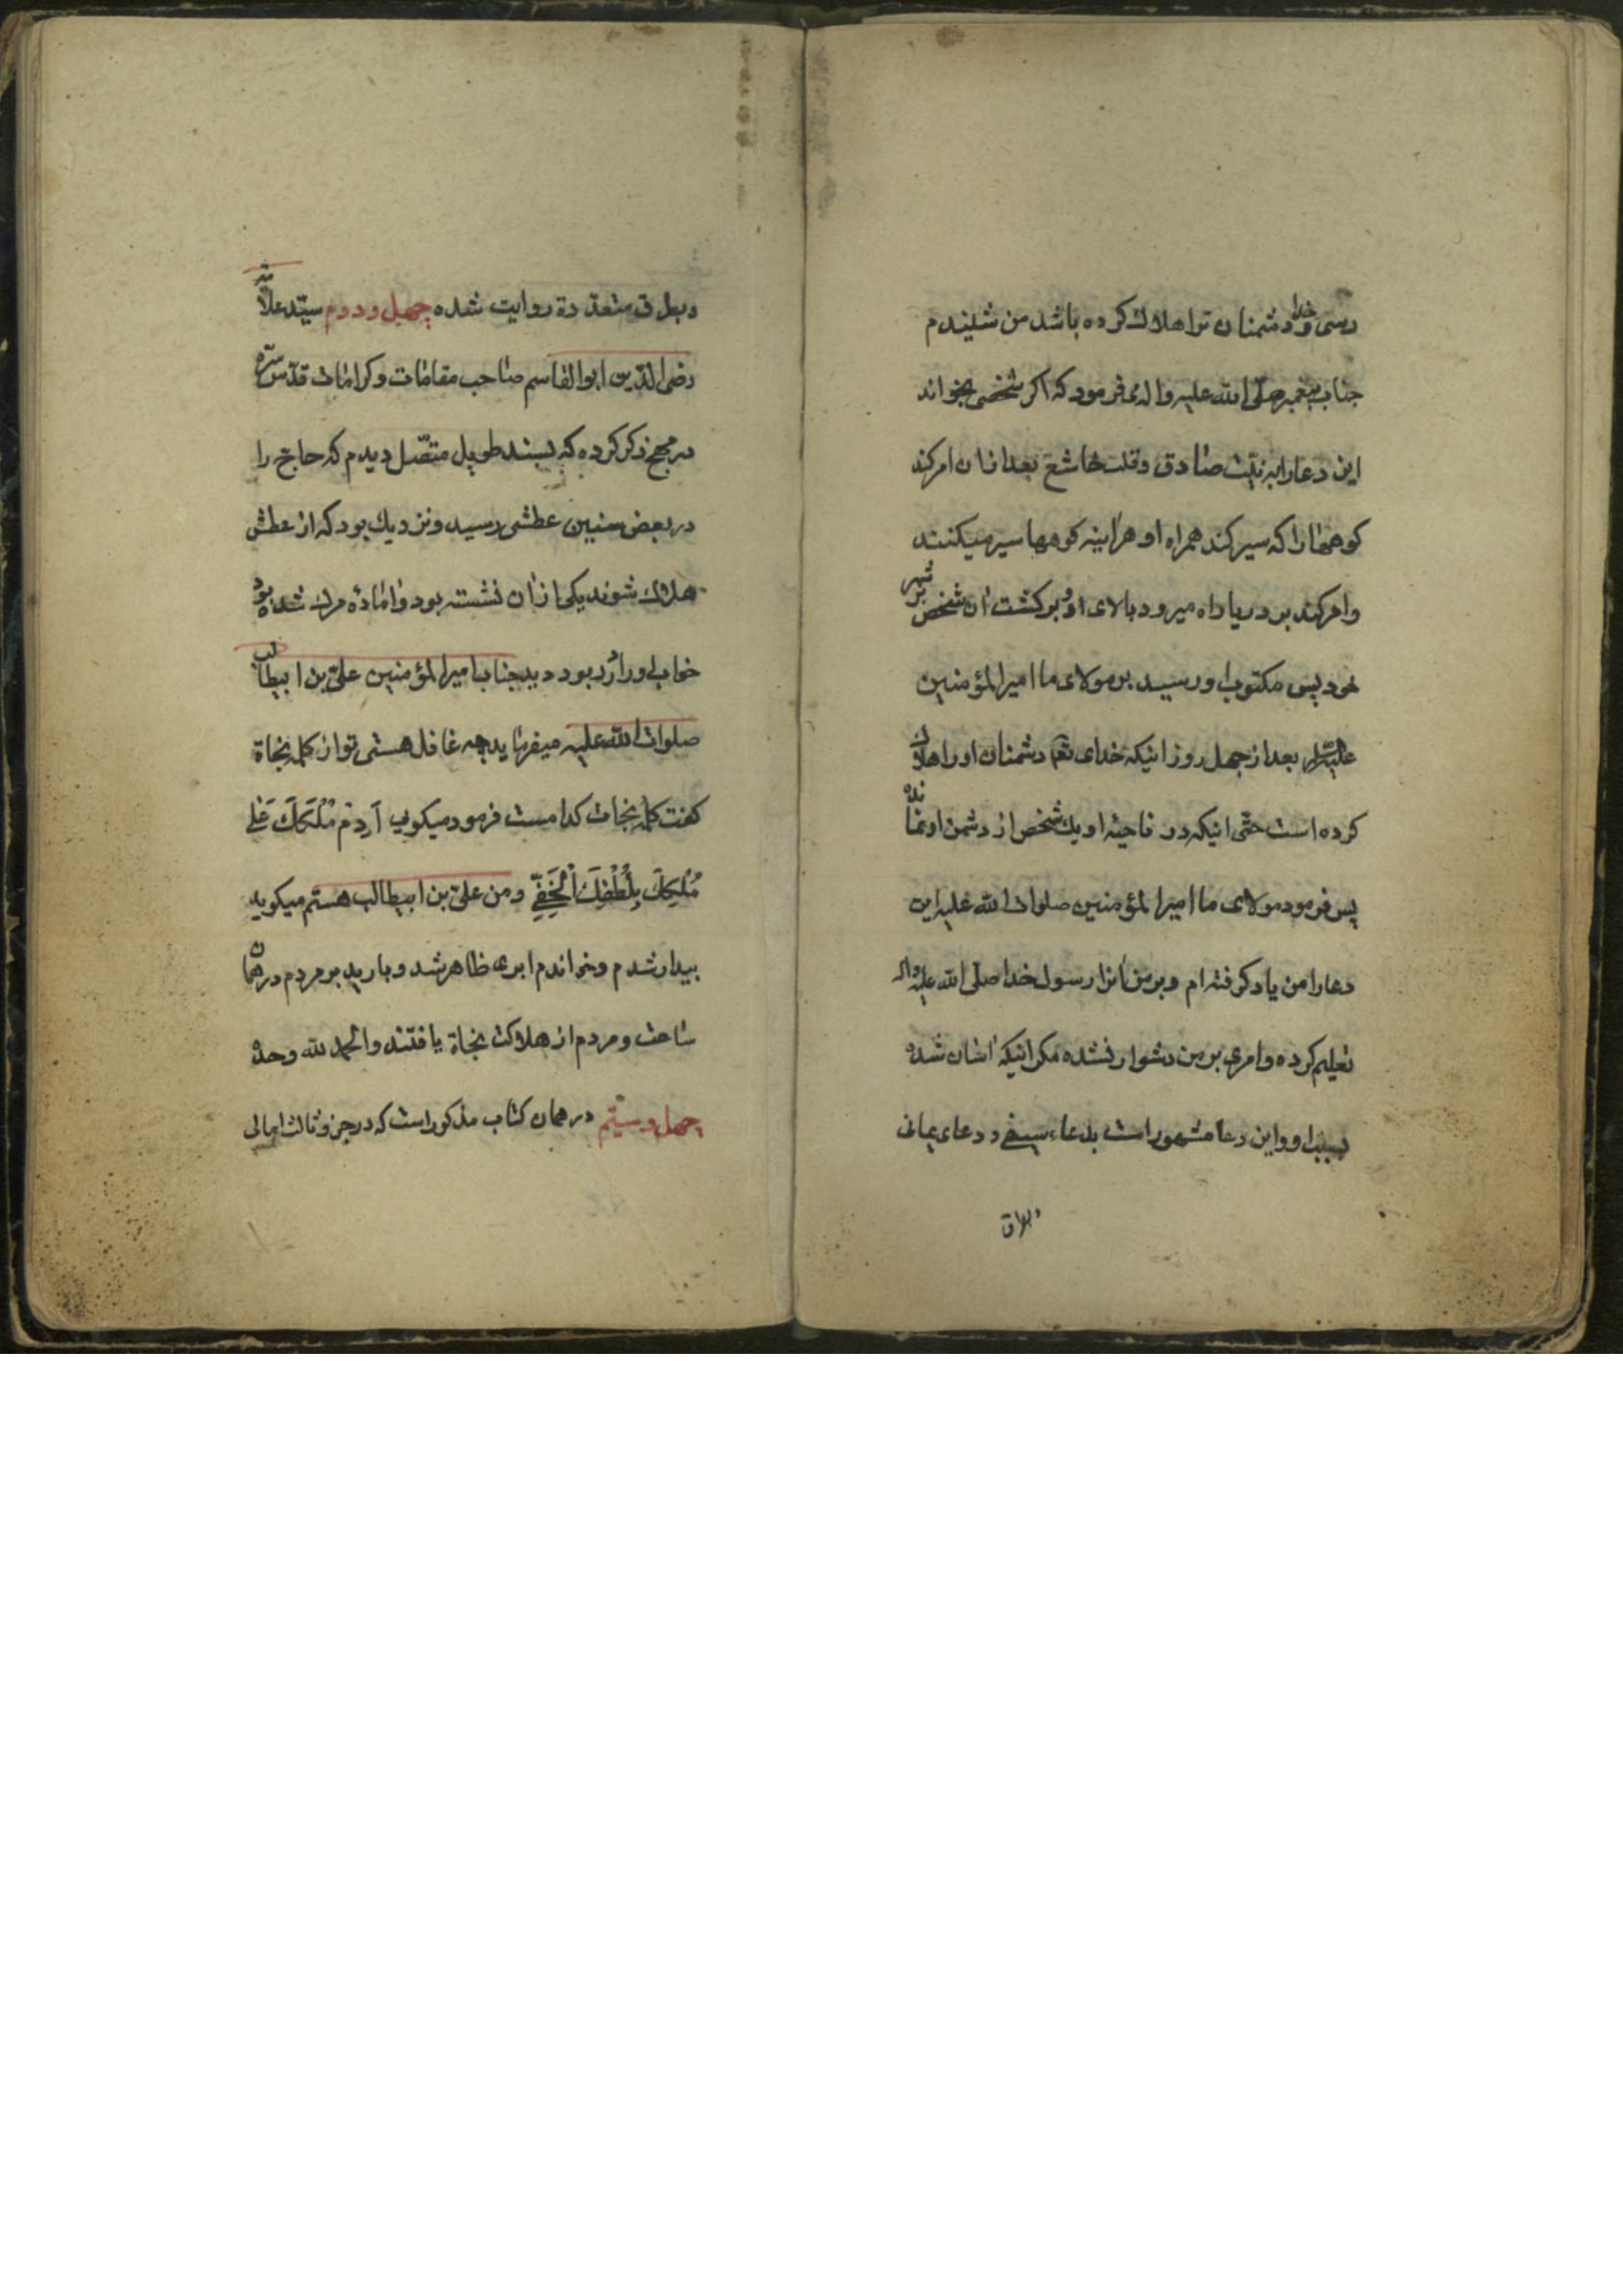 رسی و خدا دشمنان ترا هلاک کرده باشد من شنیدم
جناب پیغمبر صلی الله علیه واله می فرمود که اکر شخصی بخواند
این دعا را به نیت صادق وقلب خاشع بعد ازان امر کند
کوهها را که سیر کند همراه او هراینه کوهها سیر میکنند
وامر کند بر دریا راه میرود بالای او و برکشت ان شخص بر شهر
خود پس مکتوب او رسید بر مولای ما امیر المؤمنین
علیه السلام بعد از چهل روز اینکه خدای تعم دشمنان او را هلاک
کرده است حتی اینکه در ناحیه او یک شخص از دشمن او نمانده
پس فرمود مولای ما امیر المؤمنین صلوات الله علیه این
دعا را من یاد کرفته ام وبر من انرا رسول خدا صلی الله علیه واله
تعلیم کرده وامری بر من دشوار نشده مکر اینکه اسان شده
بسبب او واین دعا مشهور است بدعاء سیفی و دعای یمانی
وبطرق
وبطرق متعدده روایت شده چهل و دوم سید علامه
رضی الدین ابو القاسم صاحب مقامات وکرامات قدس سره
در مهج ذکر کرده که بسند طویل متصل دیدم که حاج را
در بعض سنین عطشی رسید ونزدیک بود که از عطش
هلاک شوند یکی ازان نشسته بود واماده مرک شده بود
خواب او را زد بود دید جناب امیر المؤمنین علی بن ابیطالب
صلوات الله علیه میفرماید چه غافل هستی تو از کلمه نجاة
کفت کلمه نجات کدامست فرمود میکویی اَدِمْ مُلْکَکَ عَلی
مُلْکِکَ بِلُطْفِکَ الْخَفِیِّ ومن علی بن ابیطالب هستم میکوید
بیدار شدم وخواندم ابری ظاهر شد وبارید بر مردم در همان
ساعت ومردم از هلاکت نجاة یافتند والحمد لله وحده
چهل وسیّم در همان کتاب مذکور است که در جزو ثالث امالی